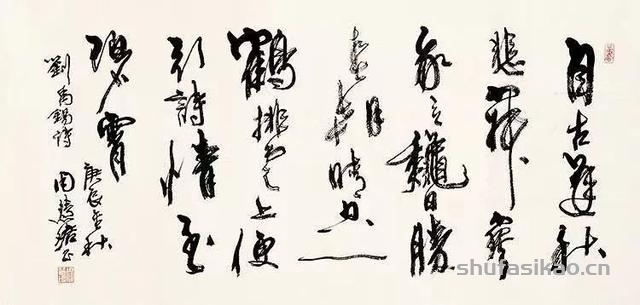 自古逢秋
悲寂寥
我言龝日勝
春朝晴空一
鶴排雲上便
引詩情到
碧霄
劉禹錫詩
庚辰秋
周慧珺
shufasikao.cn